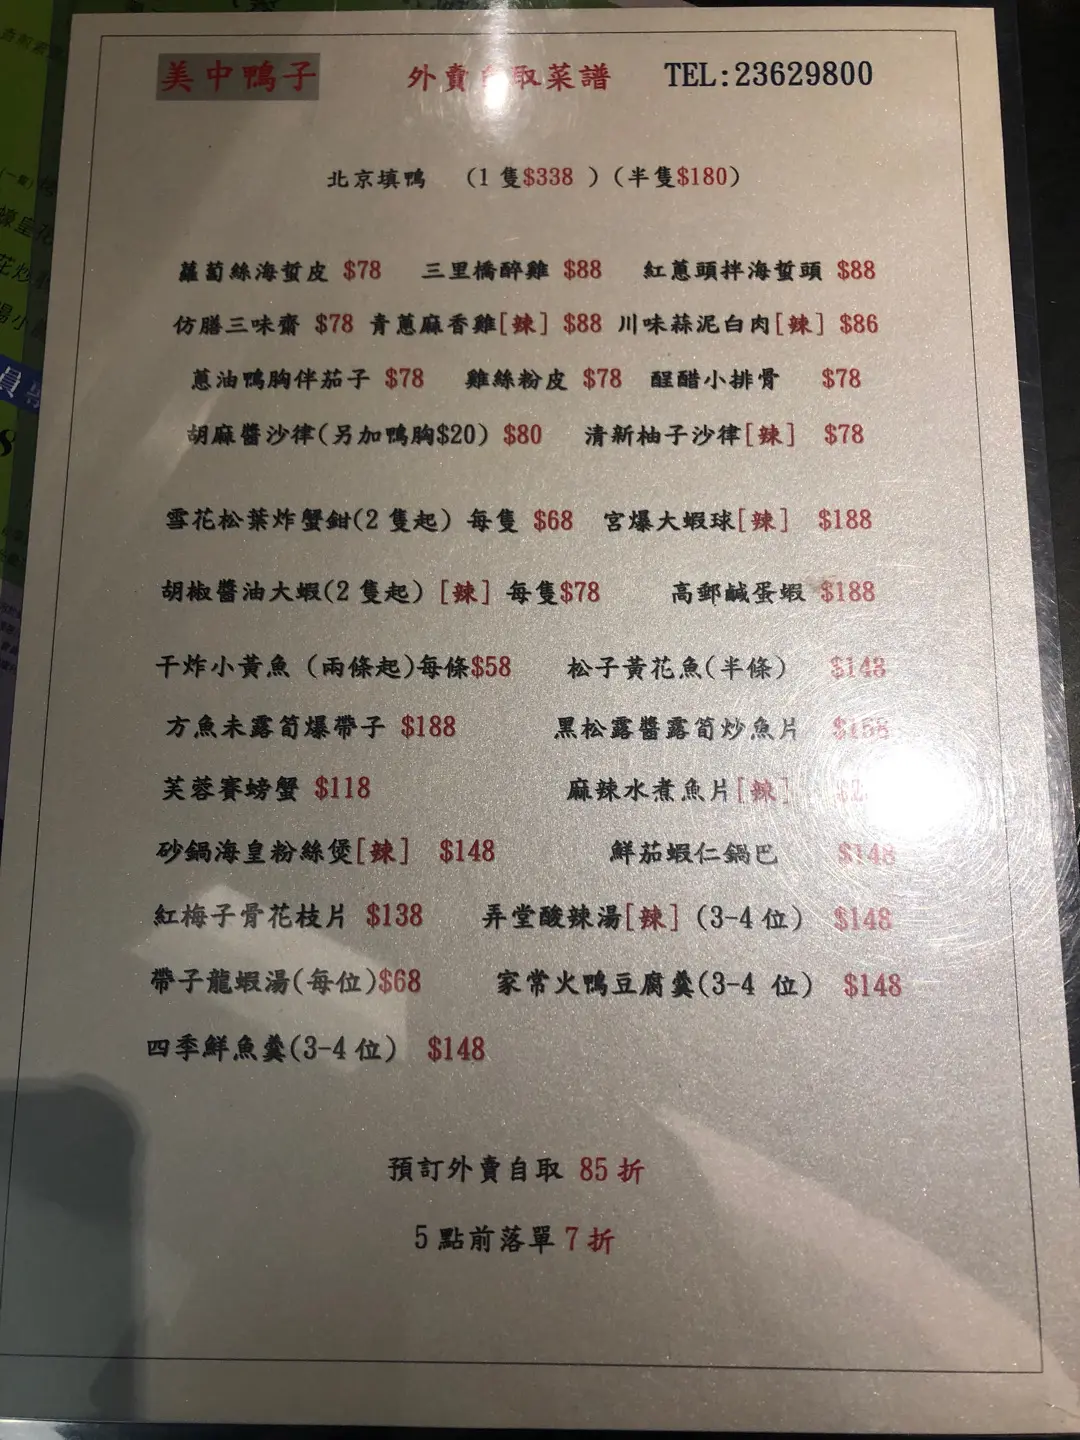 美中鴨子 外賣自取菜譜 TEL:23629800
北京填鴨 (1隻$338 ) (半隻$180)
蘿蔔絲海蜇皮 $78 三里橋醉雞 $88 紅蔥頭拌海蜇頭 $88
仿膳三味齋 $78 青蔥麻香雞[辣] $88 川味蒜泥白肉[辣] $86
蔥油鴨胸伴茄子 $78 雞絲粉皮 $78 酲醋小排骨 $78
胡麻醬沙律(另加鴨胸$20) $80 清新柚子沙律[辣] $78
雪花松葉炸蟹鉗(2隻起) 每隻 $68 宮爆大蝦球[辣] $188
胡椒醬油大蝦(2隻起) [辣] 每隻$78 高郵鹹蛋蝦 $188
干炸小黃魚 (兩條起)每條$58 松子黃花魚(半條) $148
方魚未露筍爆帶子 $188 黑松露醬露筍炒魚片 $158
芙蓉賽螃蟹 $118 麻辣水煮魚片[辣]
砂鍋海皇粉絲煲[辣] $148 鮮茄蝦仁鍋巴 $148
紅梅子骨花枝片 $138 弄堂酸辣湯[辣] (3-4位) $148
帶子龍蝦湯(每位)$68 家常火鴨豆腐羹(3-4 位) $148
四季鮮魚羹(3-4位) $148
預訂外賣自取 85折
5點前落單7折